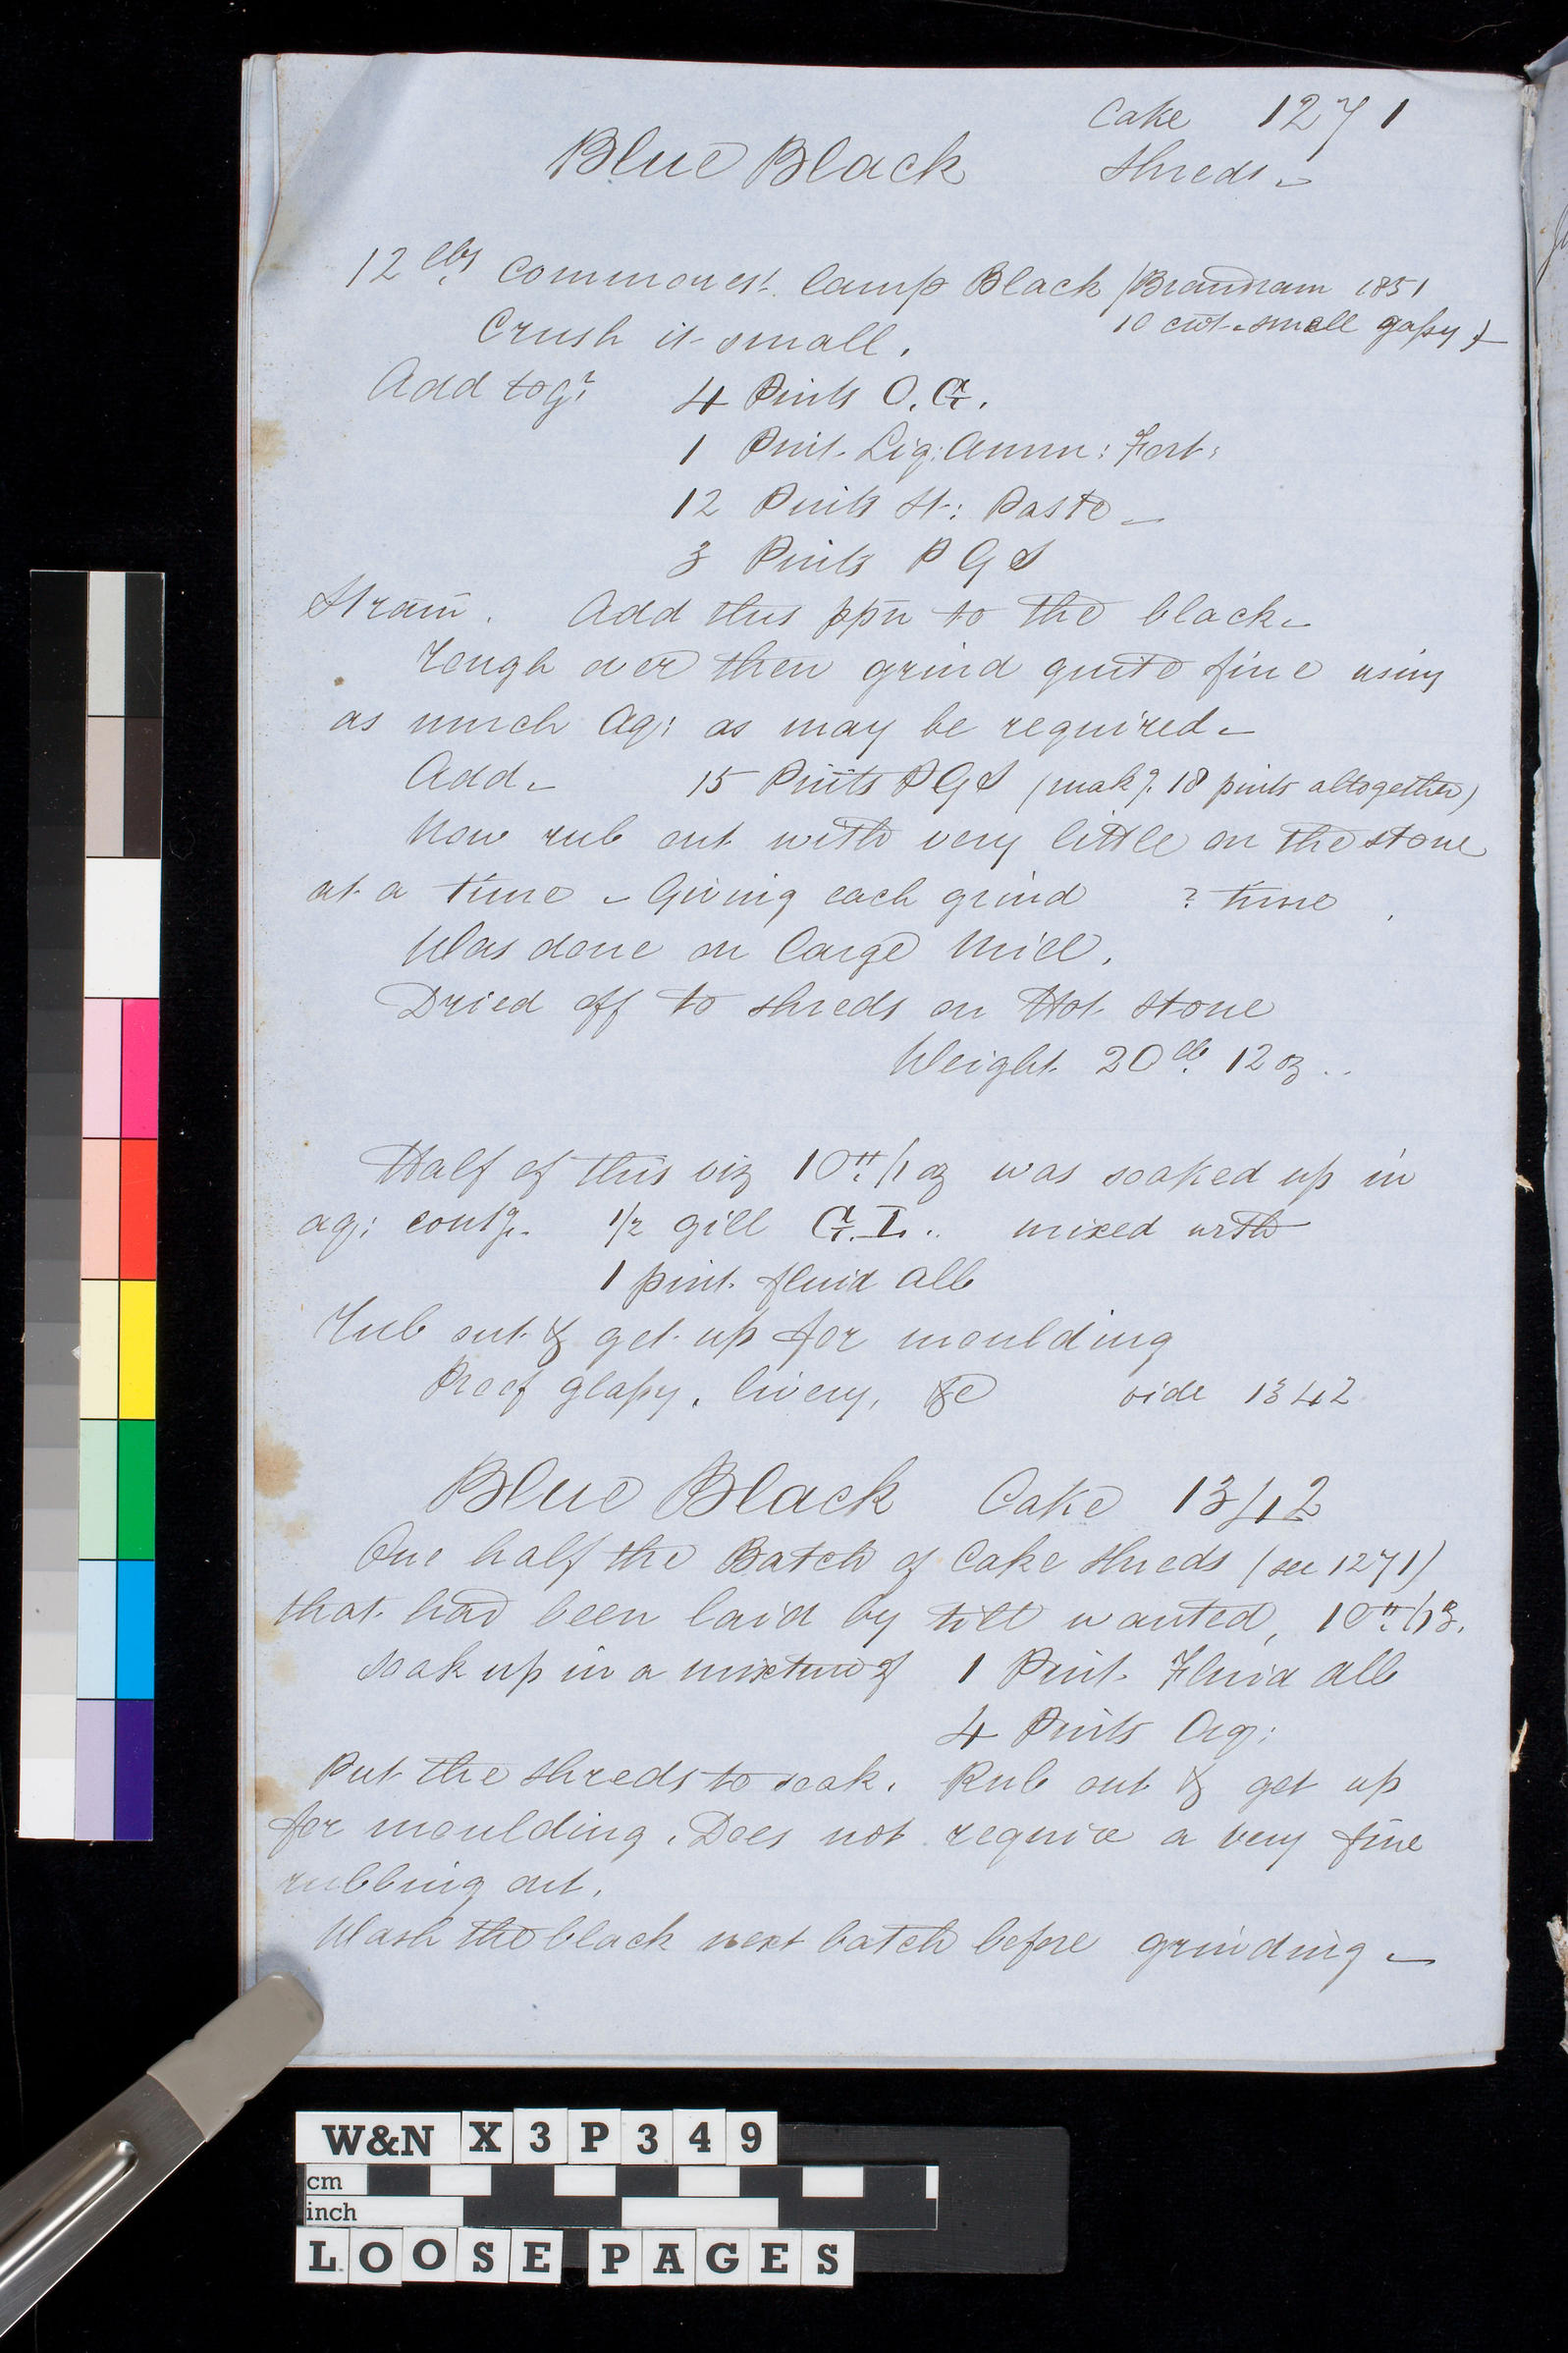 Cake 1271
Blue Black Shreds
12 lbs Commonest Lamp Black (Brandram 1851
10 cwt small
Crush it small.
Add togr 4 Pints O.G.
1 Pint Liq: Amm: Fort:
12 Pints St: Paste
3 Pints P G S
Strain. Add this ppn to the black
Rough over then grind quite fine using
as much Aq: as may be required
Add 15 Pints P G S (makg 18 pints altogether)
Now rub out with very little on the stone
at a time Giving each grind ? time
Was done on large Mill.
Dried off to shreds on Hot Stone
Weight 20 lb 12 oz
Half of this viz 10 lb/1 oz was soaked up in
aq: contg 1/2 gill G.I. mixed with
1 pint fluid Alb
Rub out & get up for moulding
Proof glassy, livery, &c vide 1342
Blue Black Cake 1342
One half the Batch of Cake Shreds (see 1271)
that had been laid by till wanted,
soak up in a mixture of 1 Pint Fluid Alb
4 Pints Aq:
Put the shreds to soak. Rub out & get up
for moulding. Does not require a very fine
rubbing out.
Wash the black next batch before grinding
W&N X3P349
cm
inch
LOOSE PAGES